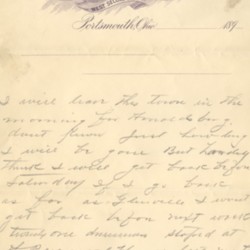 Portsmouth, Ohio 189
I will leave this town in the
morning for
don't know just how long
I will be gone But
think I will get back before
Saturday if I go back
as far as I won't
get back before next week
twenty one drummers stoped at